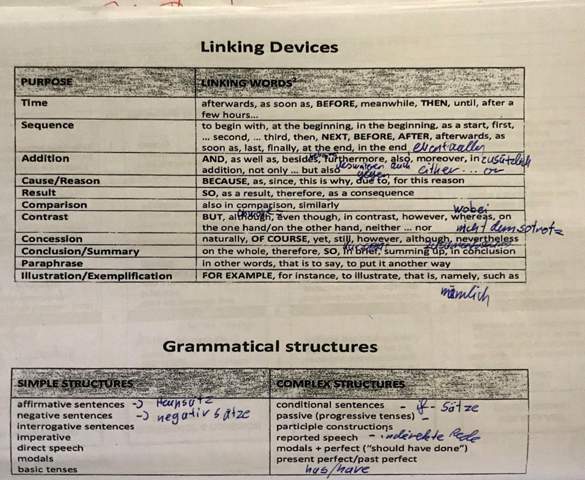 Linking Devices
PURPOSE LINKING WORDS²
Time afterwards, as soon as, BEFORE, meanwhile, THEN, until, after a
few hours...
Sequence to begin with, at the beginning, in the beginning, as a start, first,
... second, ... third, then, NEXT, BEFORE, AFTER, afterwards, as
soon as, last, finally, at the end, in the end
Addition AND, as well as, besides, furthermore, also, moreover, in zusätzlich
addition, not only ... but also either ... or
Cause/Reason BECAUSE, as, since, this is why, due to, for this reason
Result SO, as a result, therefore, as a consequence
Comparison also in comparison, similarly
wobei
Contrast BUT, although, even though, in contrast, however, whereas, on
the one hand/on the other hand, neither ... nor
Concession naturally, OF COURSE, yet, still, however, although, nevertheless
Conclusion/Summary on the whole, therefore, SO, in brief, summing up, in conclusion
Paraphrase in other words, that is to say, to put it another way
Illustration/Exemplification FOR EXAMPLE, for instance, to illustrate, that is, namely, such as
nämlich
Grammatical structures
SIMPLE STRUCTURES COMPLEX STRUCTURES
affirmative sentences -> Hauptsätze conditional sentences - if - Sätze
negative sentences -> negativ sätze passive (progressive tenses) -
interrogative sentences participle constructions
imperative reported speech - indirekte Rede
direct speech modals + perfect ("should have done")
modals present perfect/past perfect
basic tenses has/have